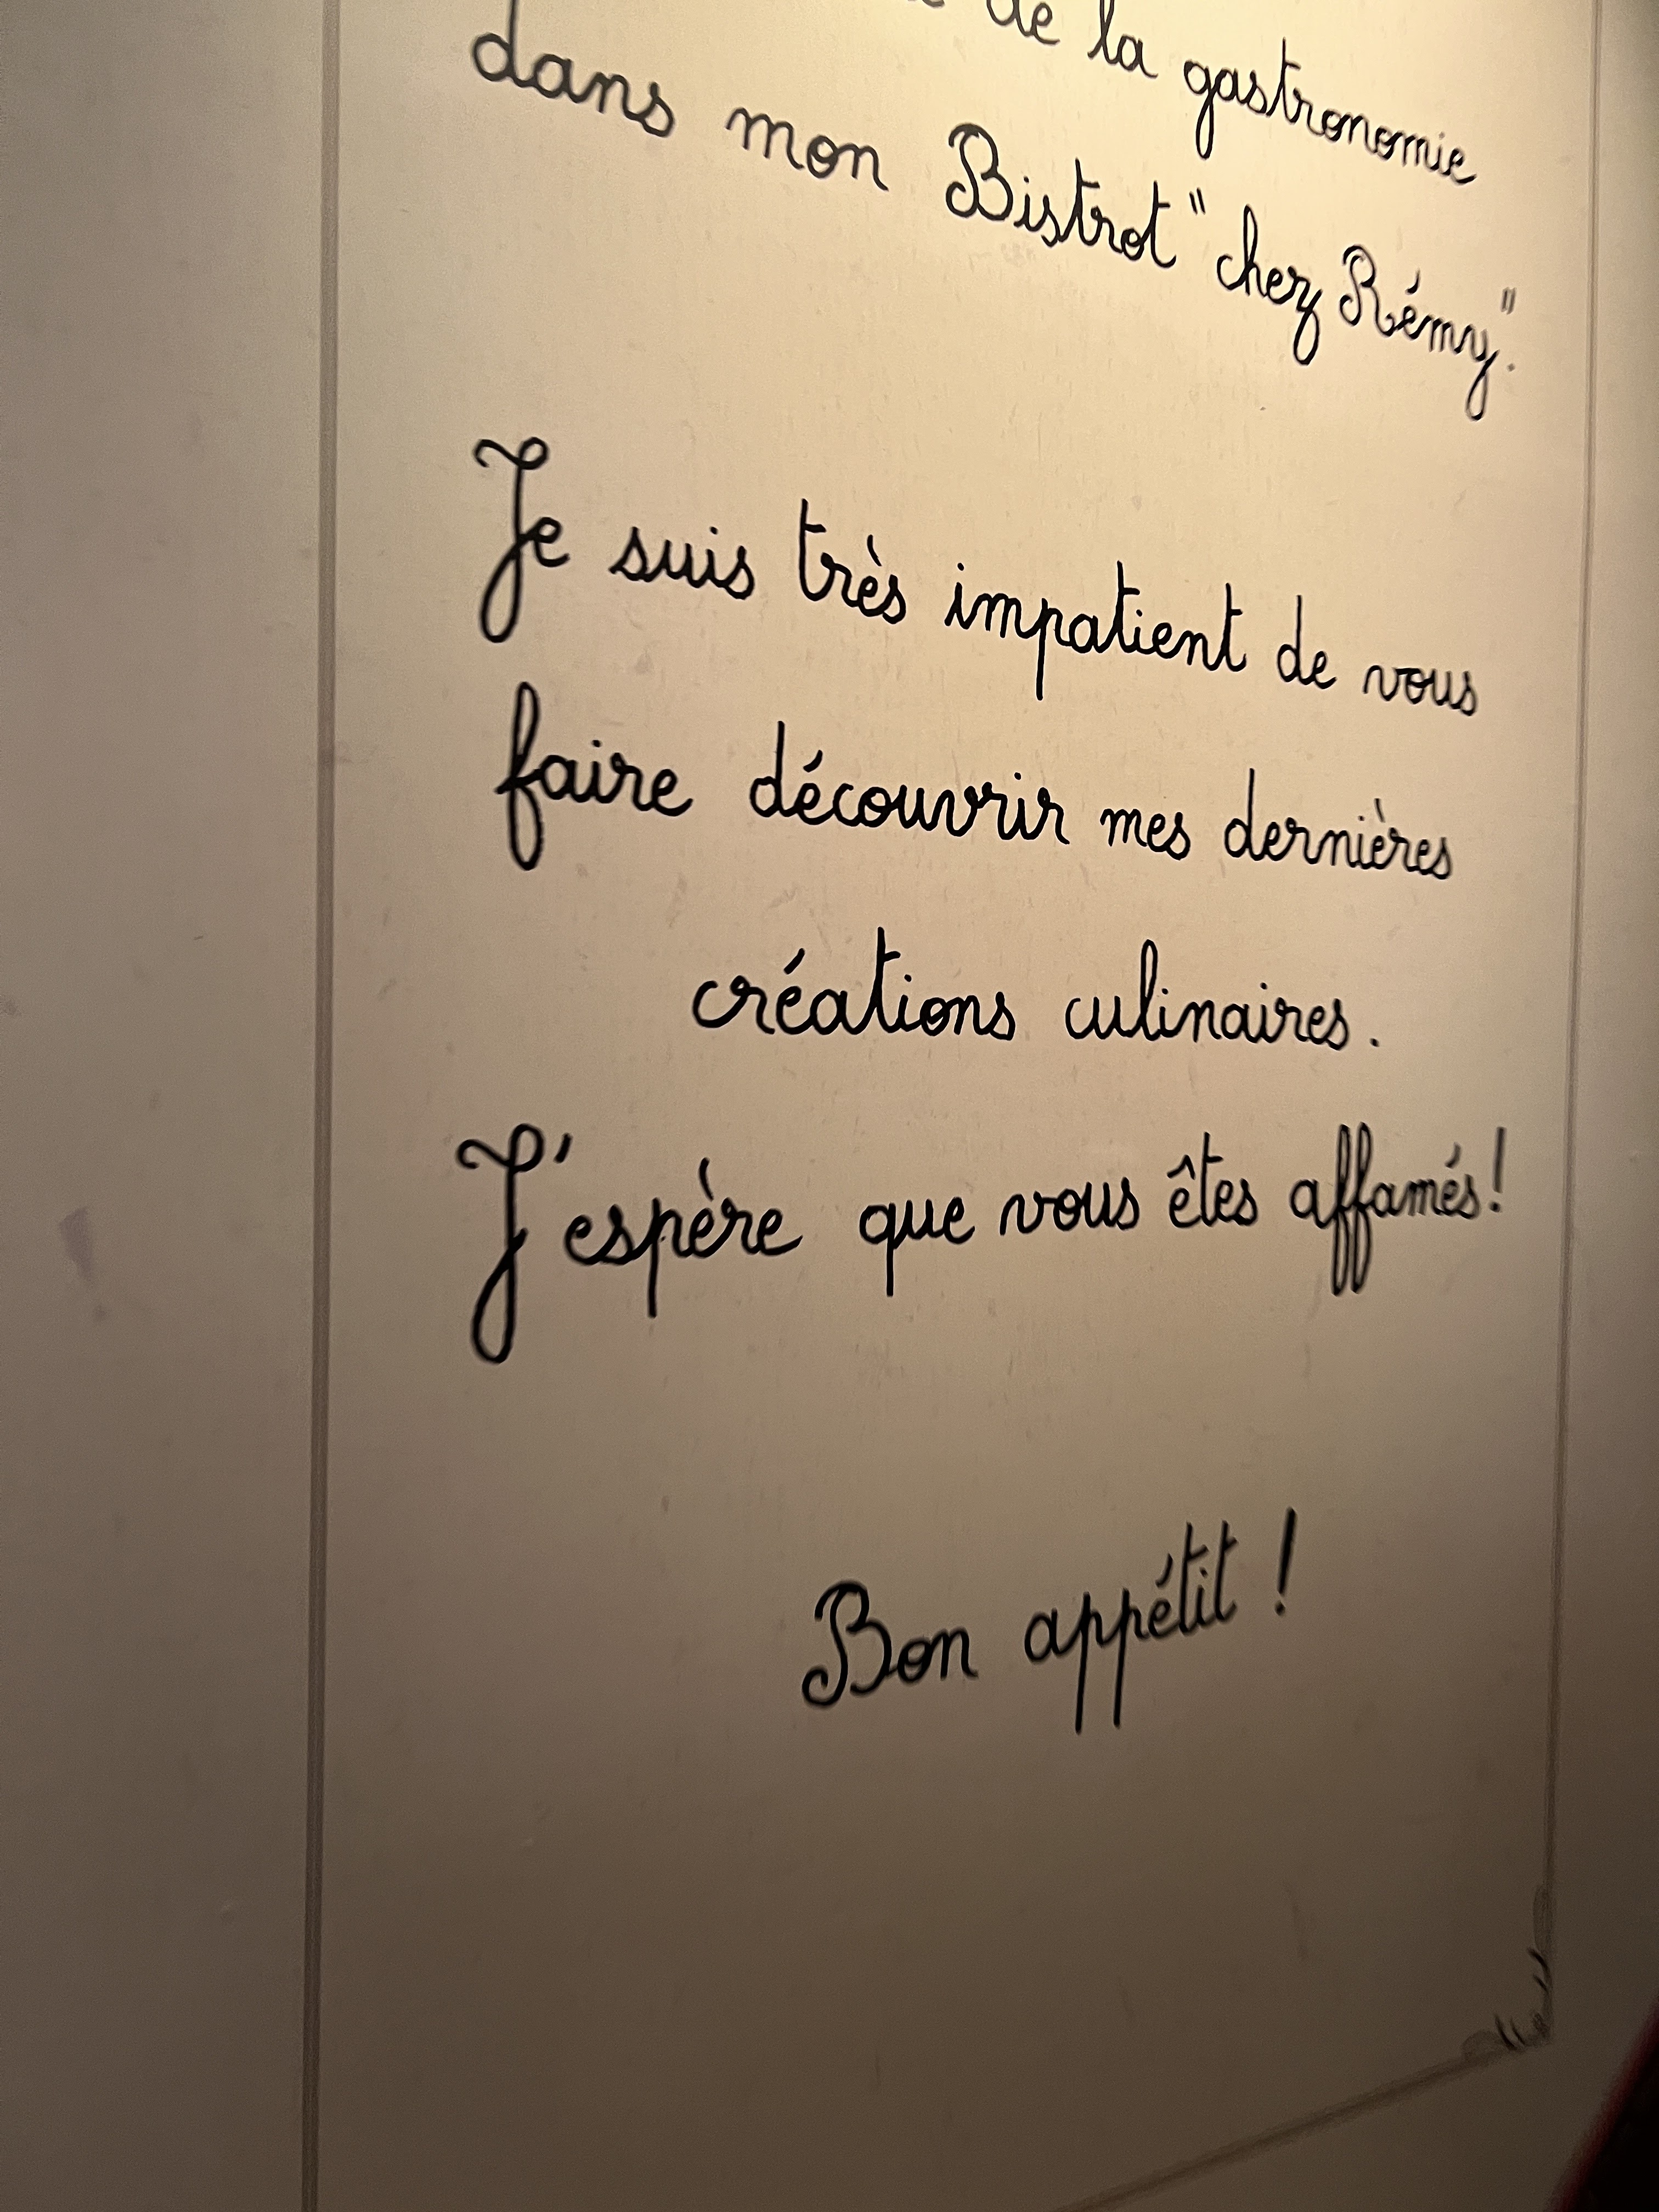 de la gastronomie
dans mon Bistrot "chez Rémy".
Je suis très impatient de vous
faire découvrir mes dernières
créations culinaires.
J'espère que vous êtes affamés!
Bon appétit !